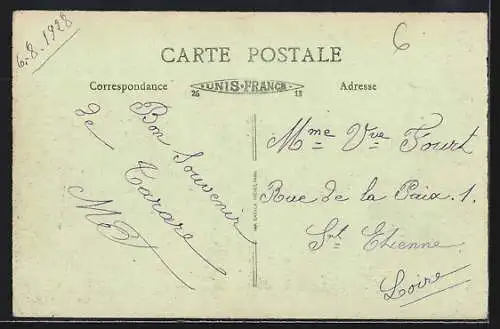 6.8.1928
6
CARTE POSTALE
Correspondance
UNIS-FRANCE
26 13
Adresse
Bon Souvenir
de Tarare
Mme Vve Fourt
Rue de la Paix. 1.
Snt Etienne
Loire